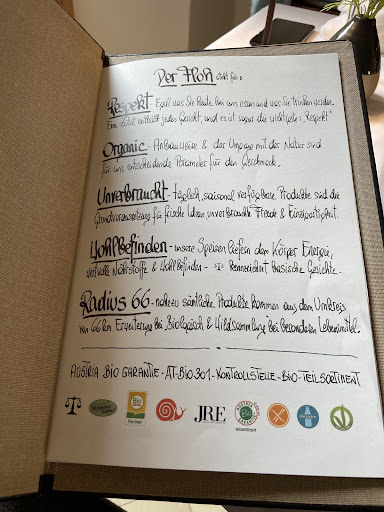 Der Floh steht für:
Respekt - Egal was Sie heute bei uns essen und was Sie trinken werden.
Eine Zutat enthält jedes Gericht, und es ist sogar die wichtigste: "Respekt"
Organic - Anbauweise & der Umgang mit der Natur sind
für uns entscheidende Parameter für den Geschmack.
Unverbraucht - täglich, saisonal verfügbare Produkte sind die
Grundvoraussetzung für frische Ideen, unverbrauchte Freude & Einzigartigkeit.
Wohlbefinden - unsere Speisen liefern dem Körper Energie,
wertvolle Nährstoffe & Wohlbefinden - kennzeichnet basische Gerichte.
Radius 66 - nahezu sämtliche Produkte kommen aus dem Umkreis
von 66 km Erweiterung bei Biologisch & Wildsammlung bei besonderen Lebensmittel.
AUSTRIA BIO GARANTIE - AT-BIO 301 - KONTROLLSTELLE - BIO-TEILSORTIMENT
Bio
Partner
JRE